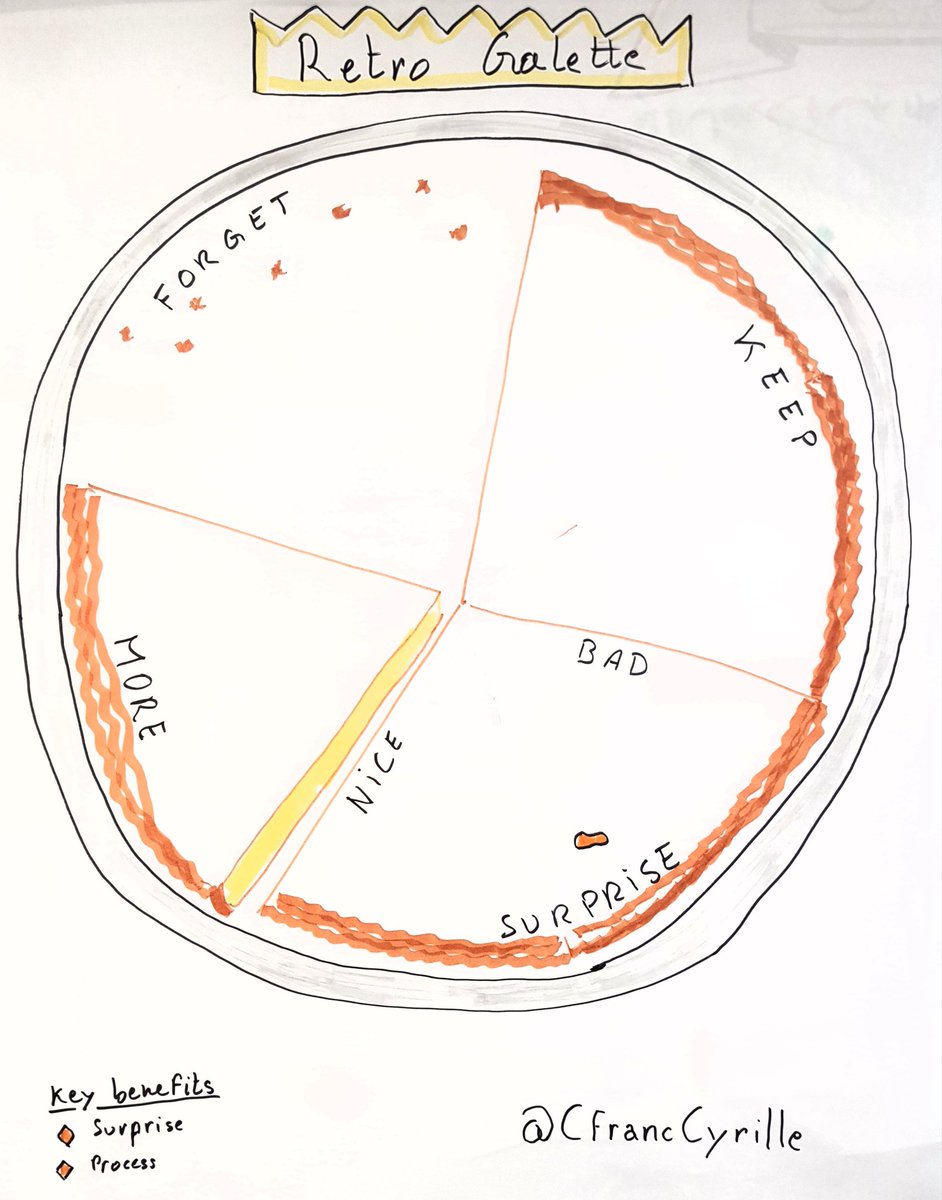 Retro Galette
FORGET
KEEP
BAD
MORE
NiCE
SURPRiSE
Key benefits
Surprise
Process
@CfrancCyrille